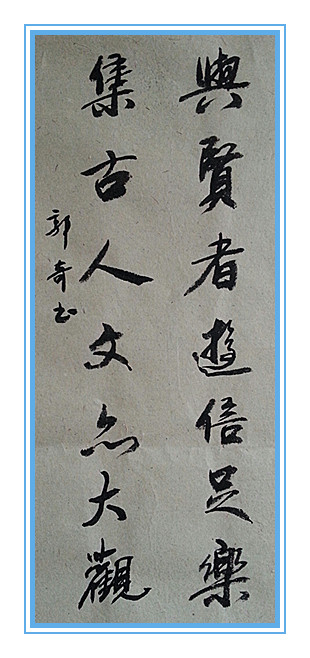 與賢者遊信足樂
集古人文亦大觀
郭奇书